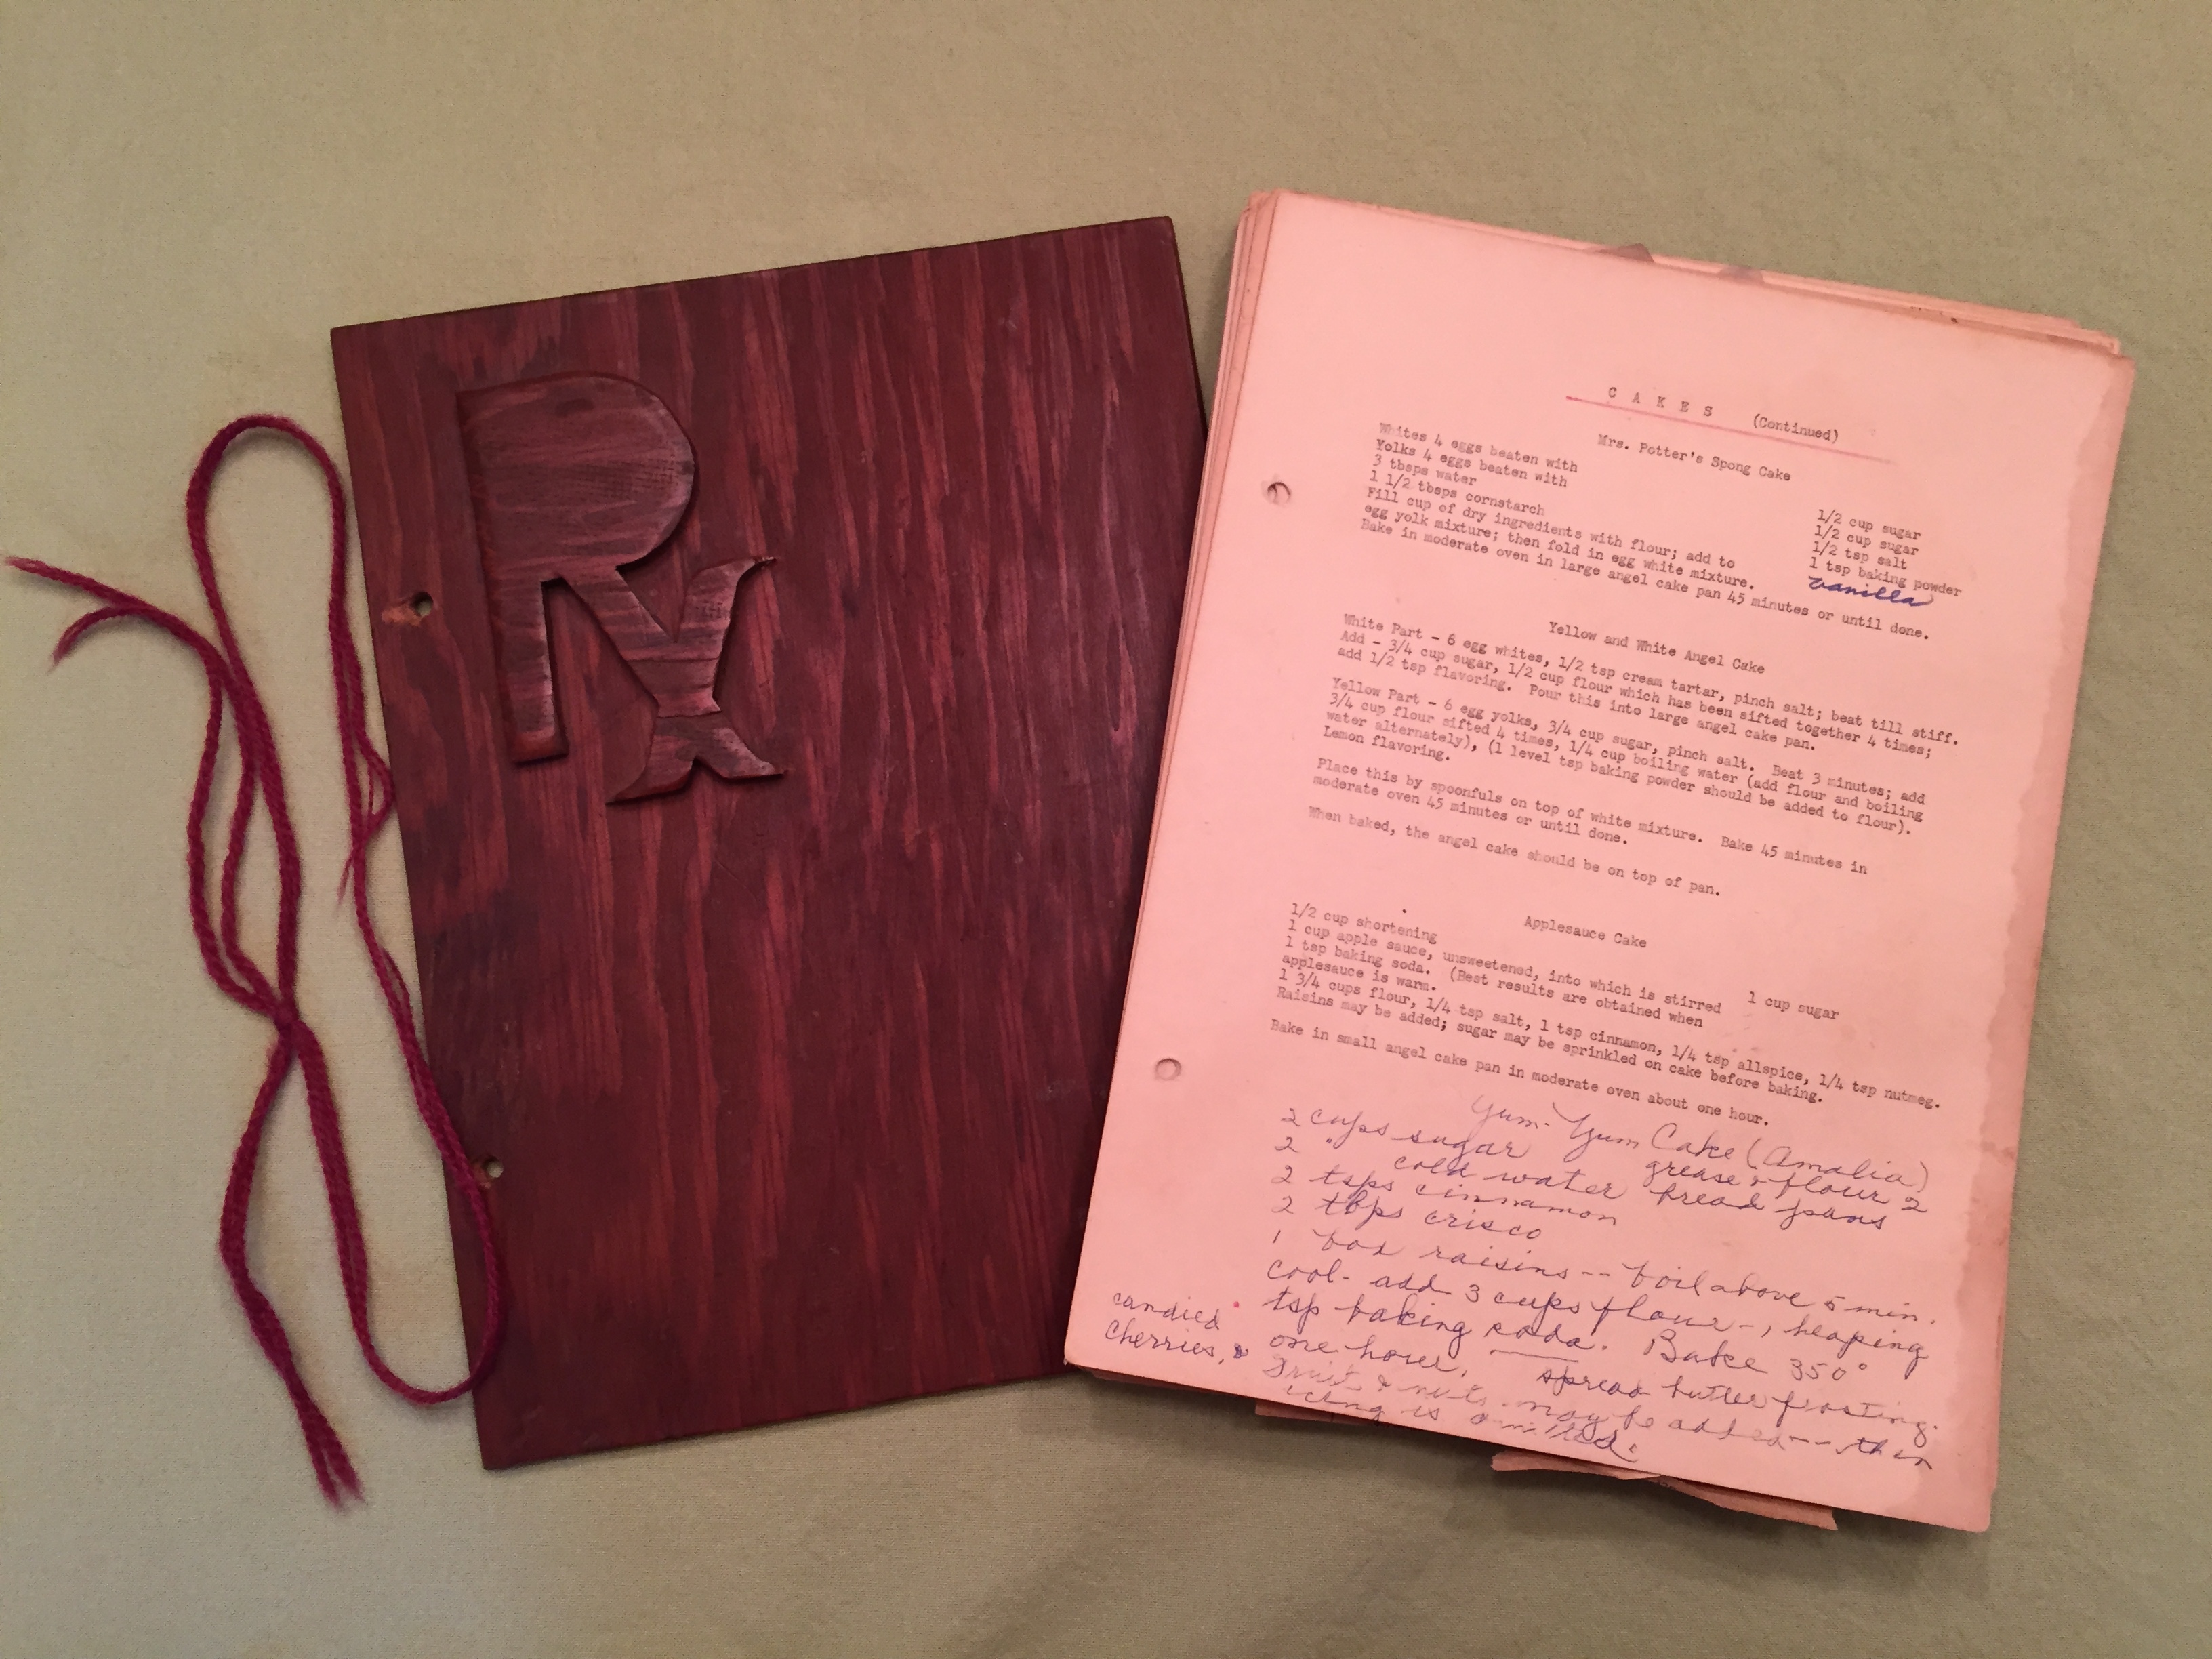 Rx
C A K E S (Continued)
Mrs. Potter's Spong Cake
Whites 4 eggs beaten with 1/2 cup sugar
Yolks 4 eggs beaten with 1/2 cup sugar
3 tbsps water 1/2 tsp salt
1 1/2 tbsps cornstarch 1 tsp baking powder
Fill cup of dry ingredients with flour; add to vanilla
egg yolk mixture; then fold in egg white mixture.
Bake in moderate oven in large angel cake pan 45 minutes or until done.
Yellow and White Angel Cake
White Part - 6 egg whites, 1/2 tsp cream tartar, pinch salt; beat till stiff.
Add - 3/4 cup sugar, 1/2 cup flour which has been sifted together 4 times;
add 1/2 tsp flavoring. Pour this into large angel cake pan.
Yellow Part - 6 egg yolks, 3/4 cup sugar, pinch salt. Beat 3 minutes; add
3/4 cup flour sifted 4 times, 1/4 cup boiling water (add flour and boiling
water alternately), (1 level tsp baking powder should be added to flour).
Lemon flavoring.
Place this by spoonfuls on top of white mixture. Bake 45 minutes in
moderate oven 45 minutes or until done.
When baked, the angel cake should be on top of pan.
Applesauce Cake
1/2 cup shortening 1 cup sugar
1 cup apple sauce, unsweetened, into which is stirred
1 tsp baking soda. (Best results are obtained when
applesauce is warm.
1 3/4 cups flour, 1/4 tsp salt, 1 tsp cinnamon, 1/4 tsp allspice, 1/4 tsp nutmeg.
Raisins may be added; sugar may be sprinkled on cake before baking.
Bake in small angel cake pan in moderate oven about one hour.
Yum-Yum Cake (Amalia)
2 cups sugar grease & flour 2
2 " cold water bread pans
2 tsps cinnamon
2 tbps crisco
1 box raisins -- boil above 5 min.
cool - add 3 cups flour -, heaping
tsp baking soda. Bake 350°
one hour. spread butter frosting.
candied
cherries, &
fruits & nuts may be added -- then
icing is omitted.